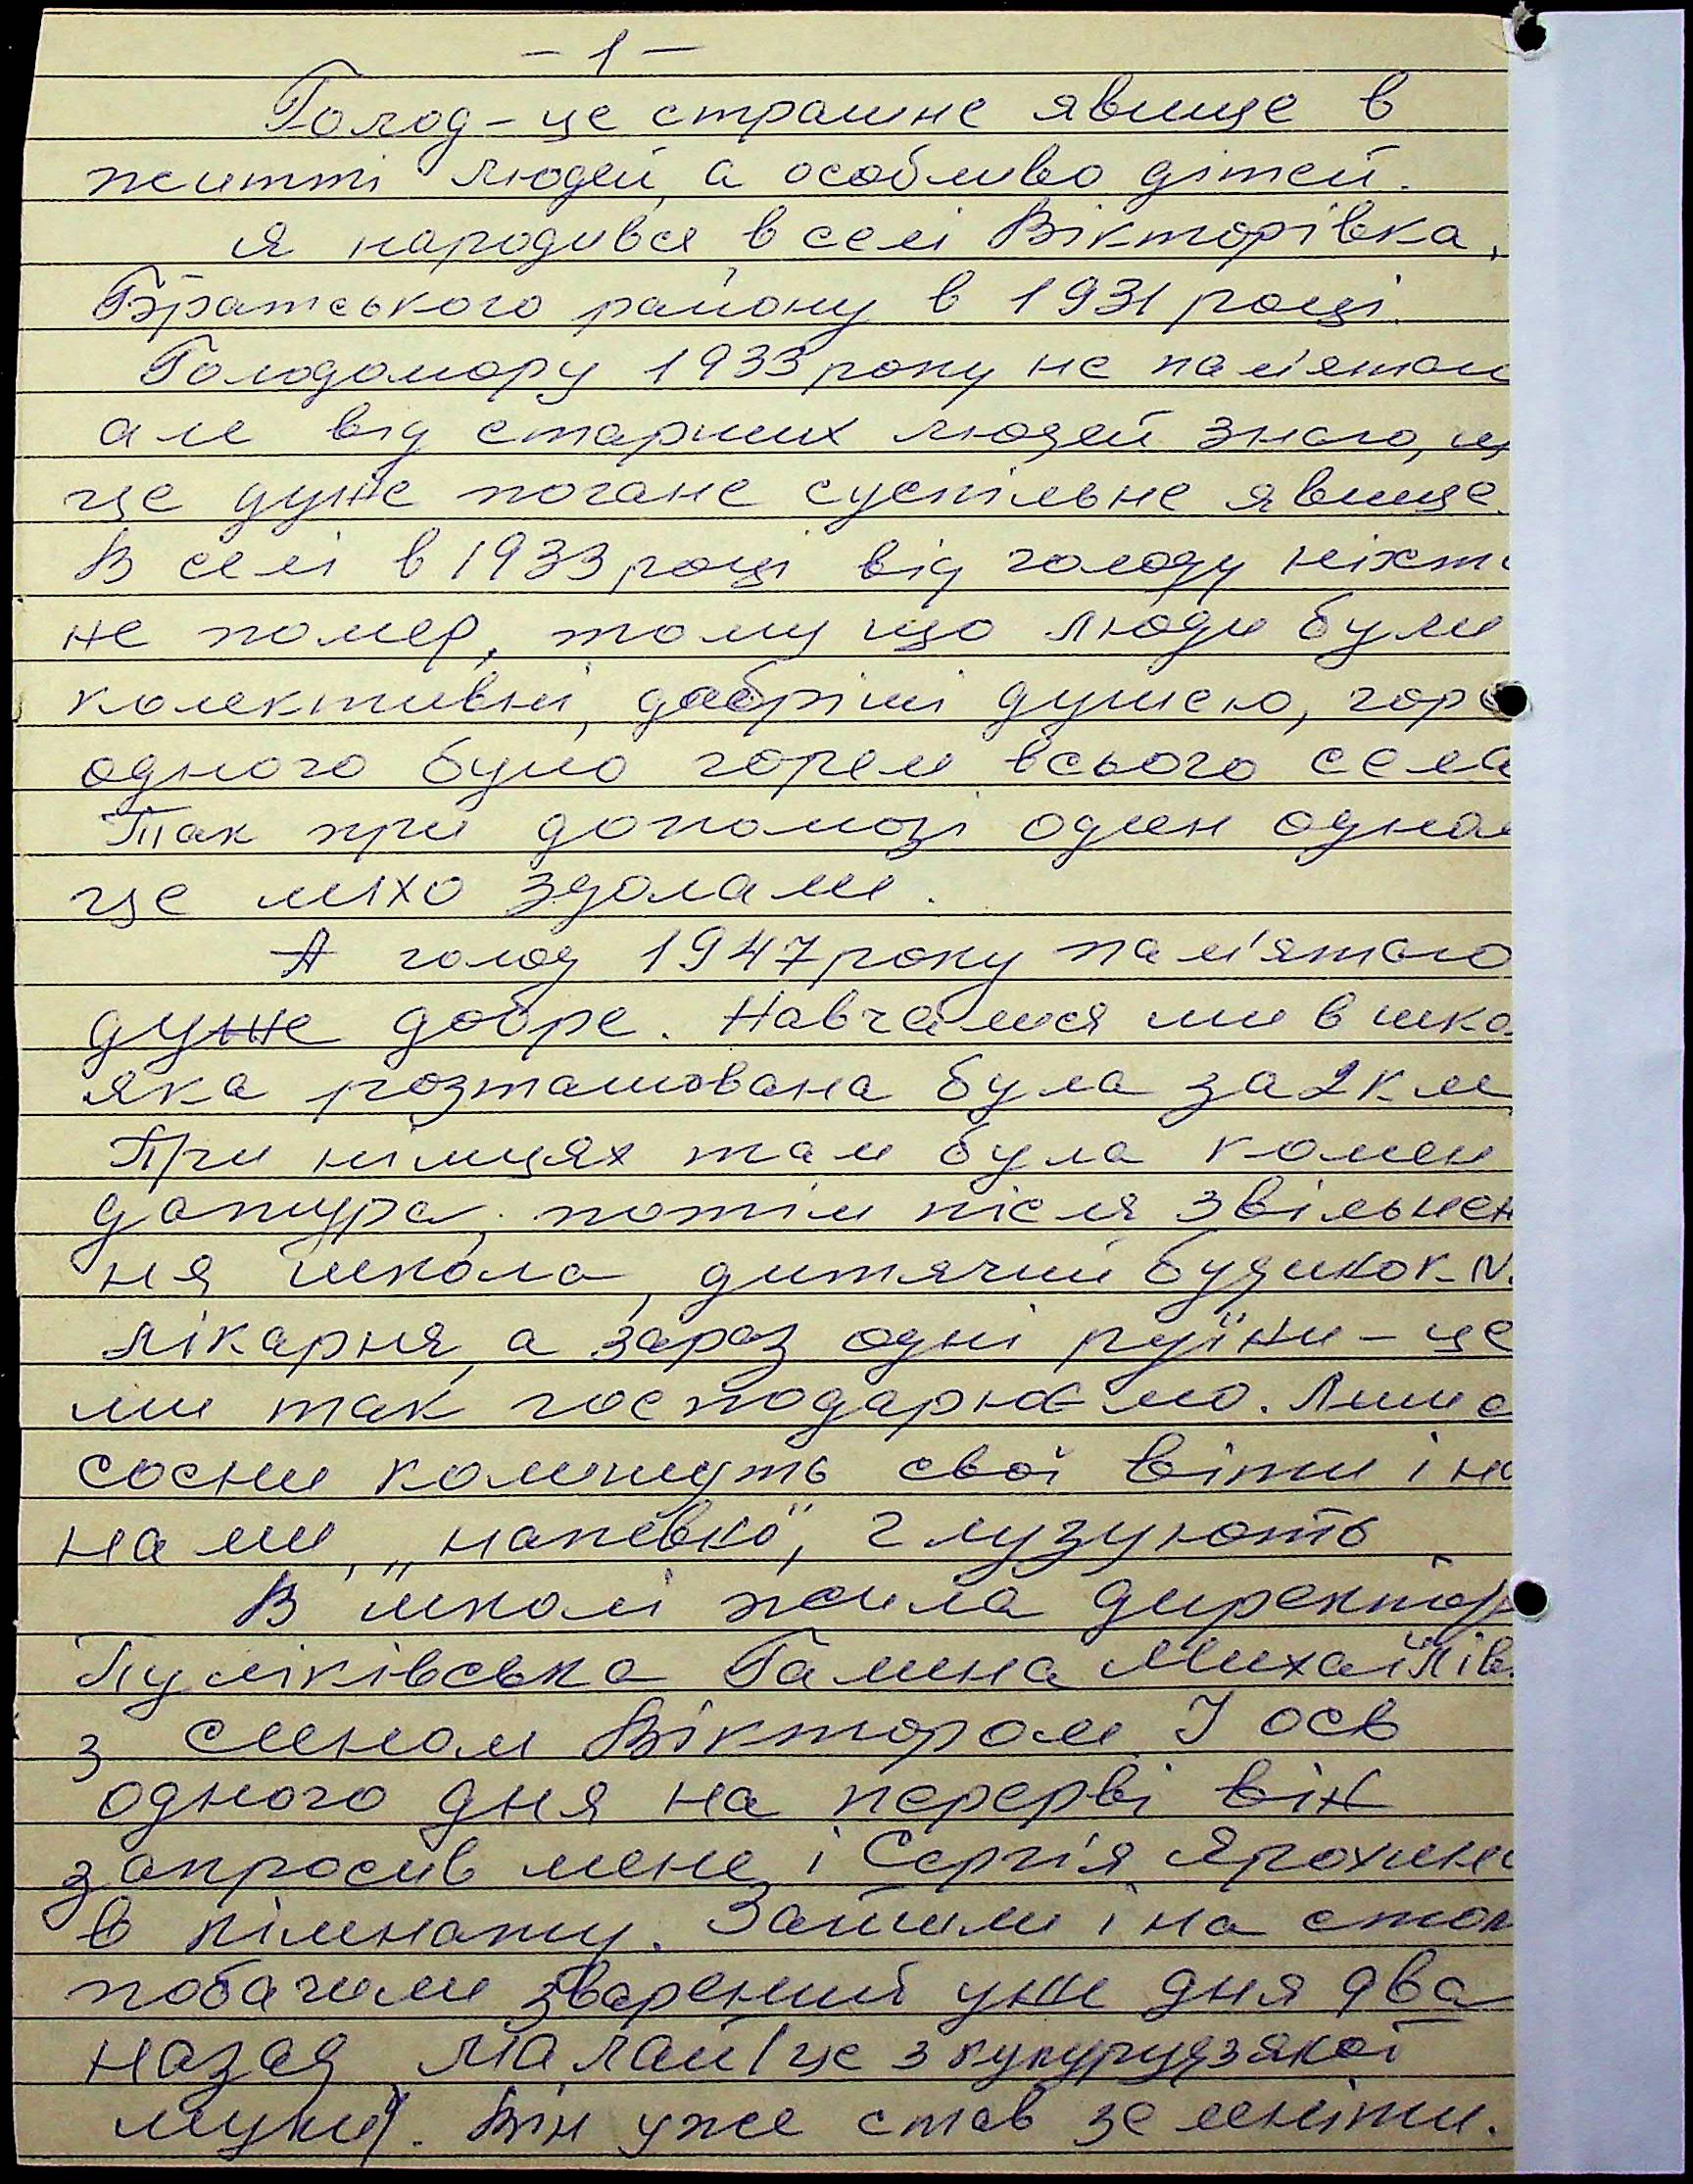 - 1 -
Голод - це страшне явище в
житті людей, а особливо дітей.
Я народився в селі Вікторівка,
Братського району в 1931 році.
Голодомору 1933 року не пам'ятаю
але від старших людей знаю, щ
це дуже погане суспільне явище.
В селі в 1933 році від голоду ніхто
не помер, тому що люди були
колективні, добріші душею, горе
одного було горем всього села
Так при допомозі один одном
це лихо здолали.
А голод 1947 року пам'ятаю
дуже добре. Навчалися ми в шко
яка розташована була за 2 км
При німцях там була комен
датура, потім після звільнен
ня школа, дитячий будинок - N.
лікарня, а зараз одні руїни - це
ми так господарюємо. Лише
сосни колишуть свої віти і на
нами, глузують
В школі жила директор
Пуліківська Галина Михайлів.
з сином Віктором. І ось
одного дня на перерві він
запросив мене і Сергія Ярохин
в кімнату. Зайшли і на стол
побачили зварений уже дня два
назад малай (це з кукурудзякої
муки). Він уже став зеленіти.